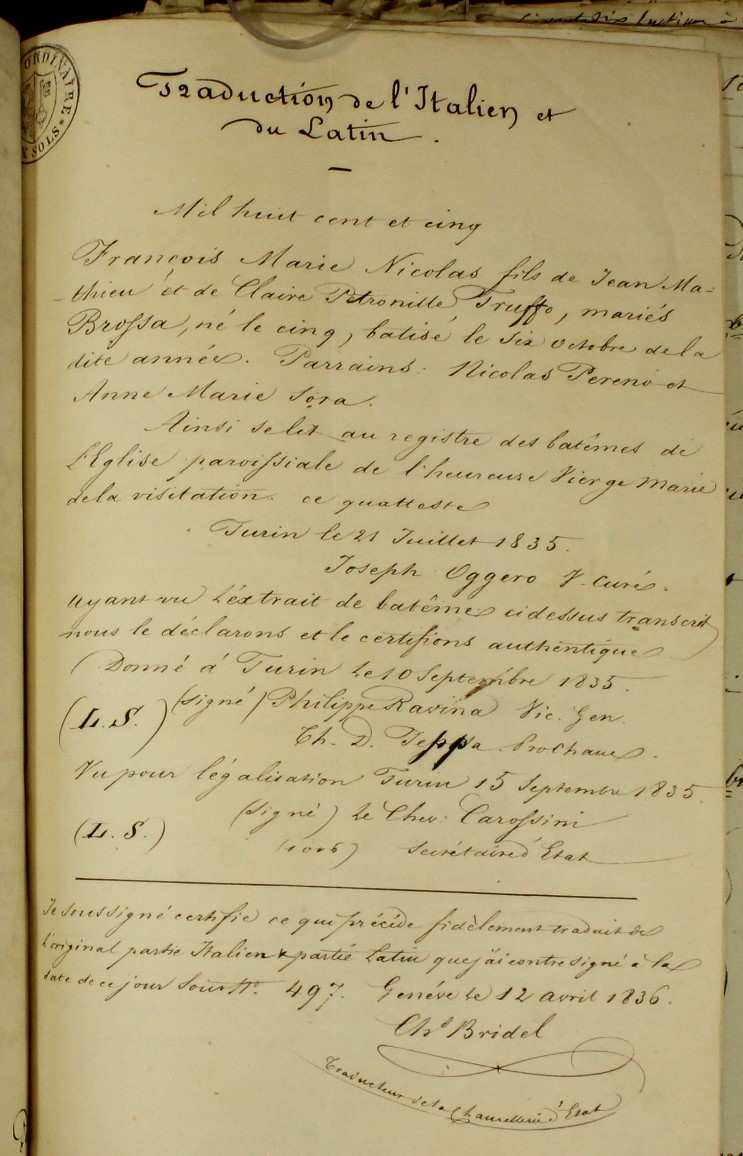 ORDINAIRE
SOLS
Traduction de l'Italien et
du Latin.
Mil huit cent et cinq
François Marie Nicolas fils de Jean Ma-
thieu et de Claire Petronille Truffo, mariés
Brossa, né le cinq, batisé le six octobre de la
dite année. Parrains: Nicolas Pereno et
Anne Marie Sora.
Ainsi se lit au registre des batêmes de
l'Eglise paroissiale de l'heureuse Vierge Marie
de la visitation. ce qu'atteste
Turin le 21 Juillet 1835.
Joseph Oggero V. Curé.
Ayant vu l'éxtrait de batême cidessus transcrit
nous le déclarons et le certifions authentique
Donné à Turin le 10 Septembre 1835.
(L. S.) (signé) Philippe Ravina Vic. Gen.
Th. D. Teppa
Vu pour légalisation Turin 15 Septembre 1835.
(signé) Le Chev. Carossini
(L. S.) Secrétaire d'Etat
Je soussigné certifie ce qui précéde fidèlement traduit de
l'original partie Italien & partie Latin que j'ai contresigné à la
date de ce jour sous No. 497. Genéve le 12 avril 1836.
Chs Bridel
Traducteur de la Chancellerie d'Etat